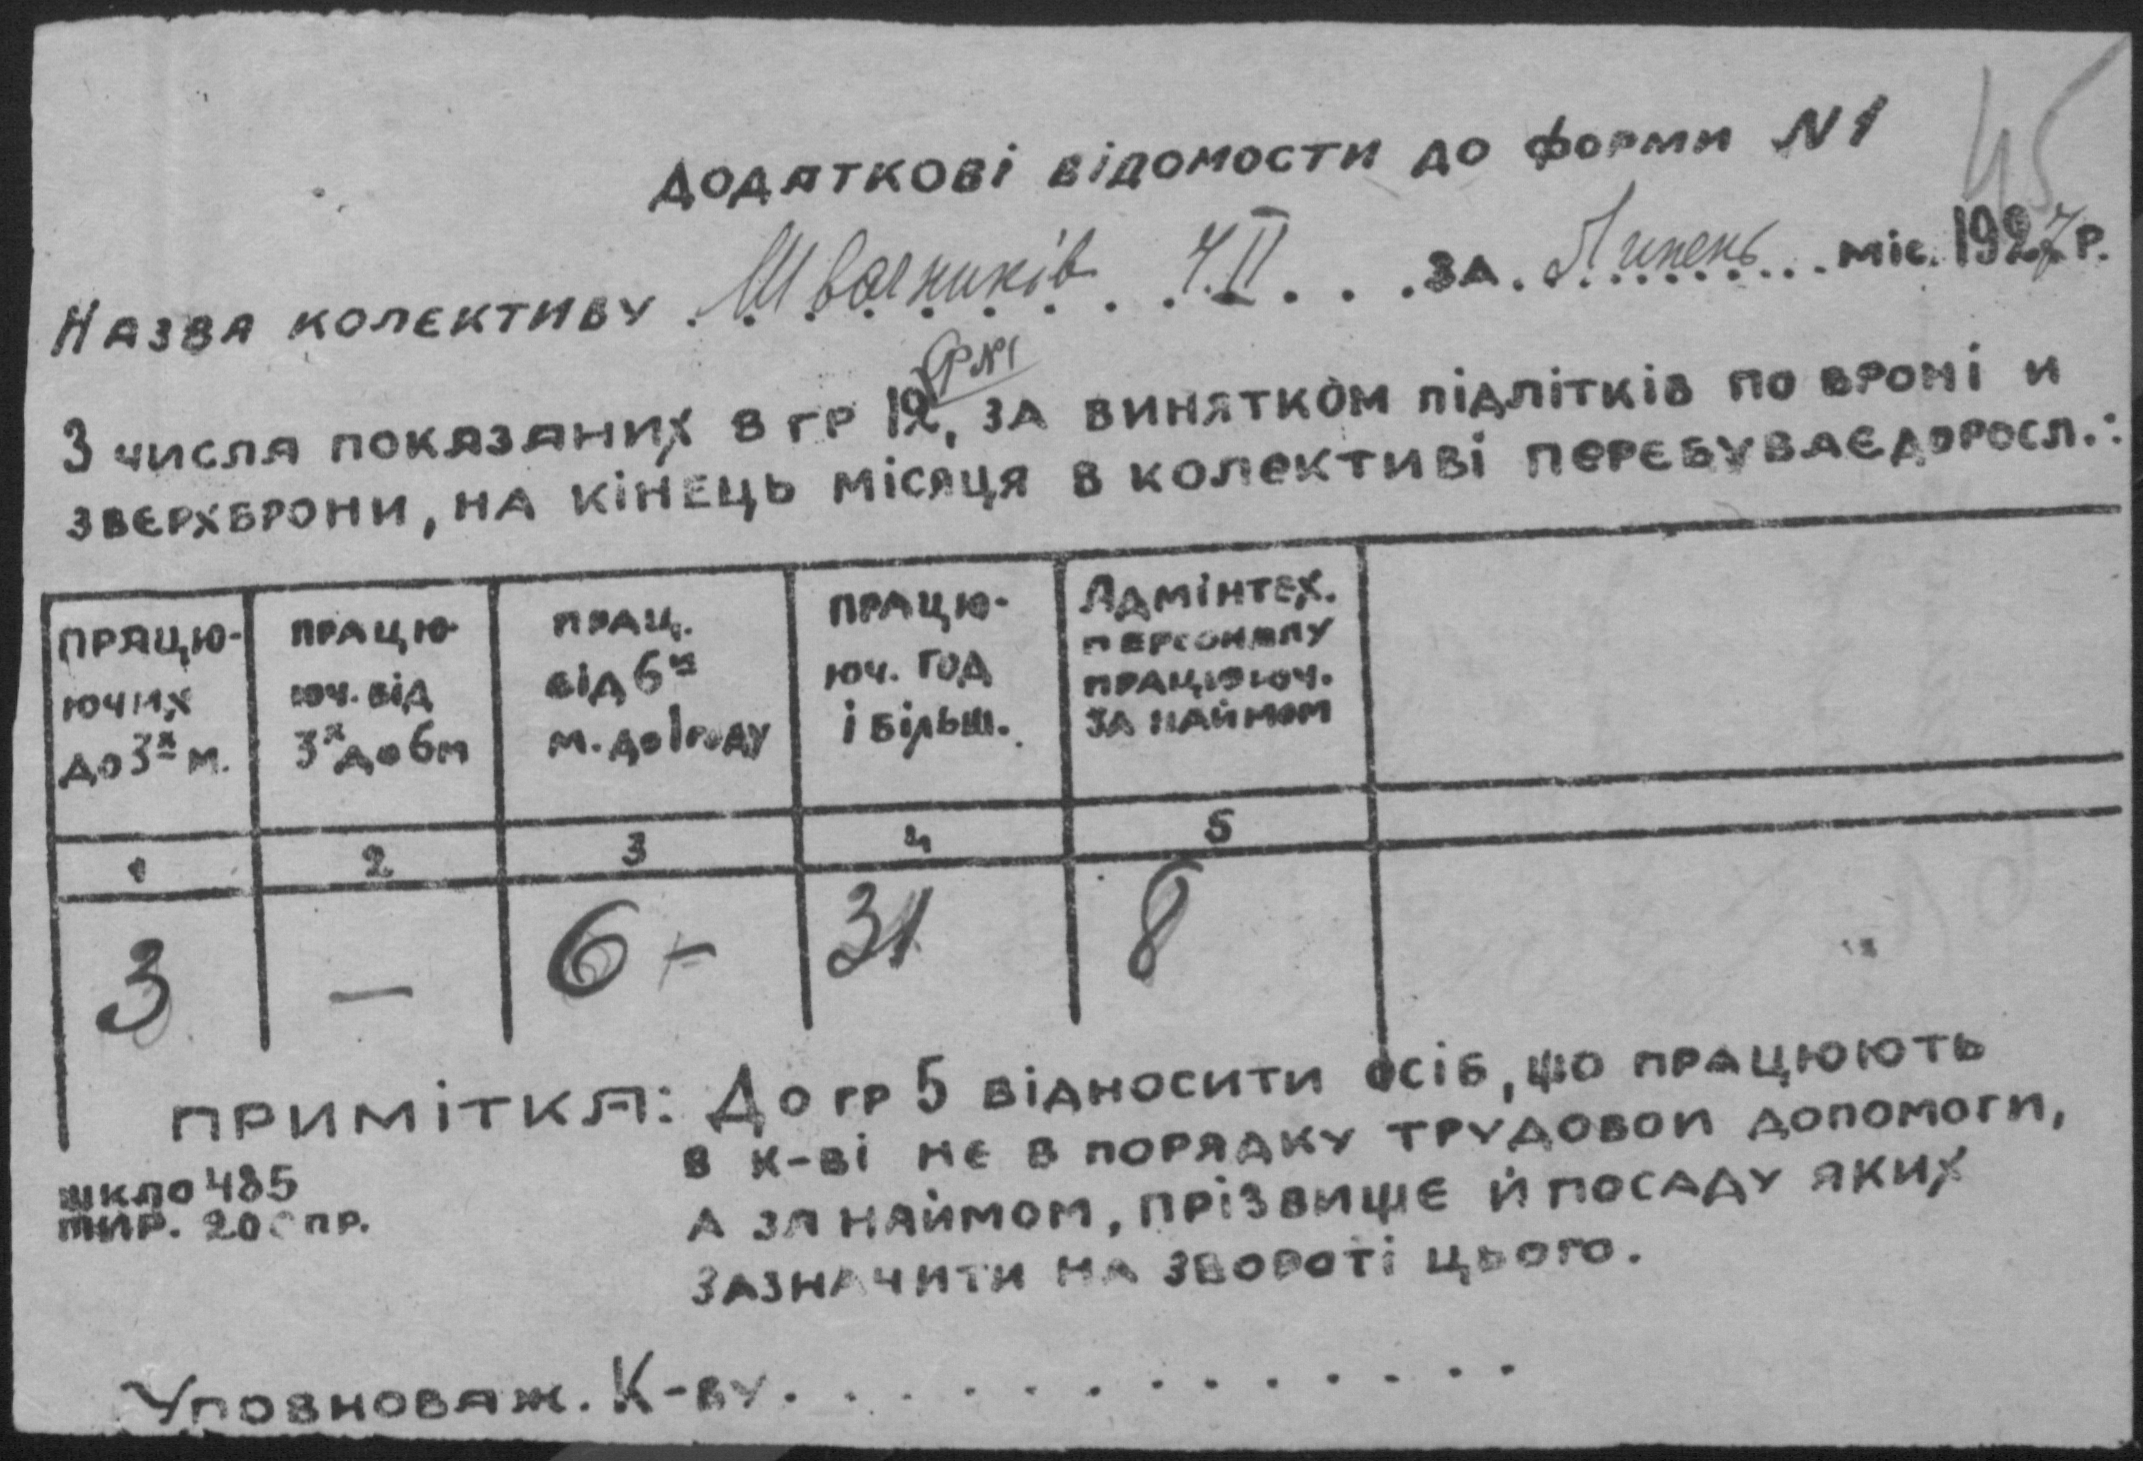 45
Додаткові відомости до форми N1
Назва колективу Швачників Ч.II за Липень міс. 1927 р.
Ф№1
З числа показаних в гр 12, за винятком підлітків по броні и
зверхброни, на кінець місяця в колективі перебуває доросл.:
Працю- Працю- Прац. Працю- Адмінтех.
ючих юч. від від 6ти юч. год персоналу
до 3х м. 3х до 6м м. до 1 году і більш. працююч.
за наймом
1 2 3 4 5
3 — 6 - 31 8
Примітка: До гр 5 відносити осіб, що працюють
в к-ві не в порядку трудовои допомоги,
а за наймом, прізвище й посаду яких
зазначити на звороті цього.
шкло 485
тир. 200 пр.
Уповноваж. К-ву